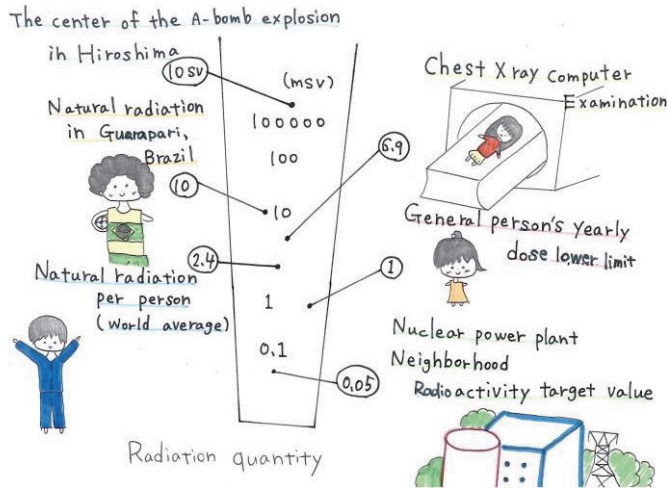 The center of the A-bomb explosion
in Hiroshima
10SV
(mSv)
100000
100
10
1
0.1
Natural radiation
in Guarapari,
Brazil
10
Natural radiation
per person
(world average)
2.4
Chest Xray Computer
Examination
6.9
General person's yearly
dose lower limit
1
Nuclear power plant
Neighborhood
Radioactivity target value
0.05
Radiation quantity